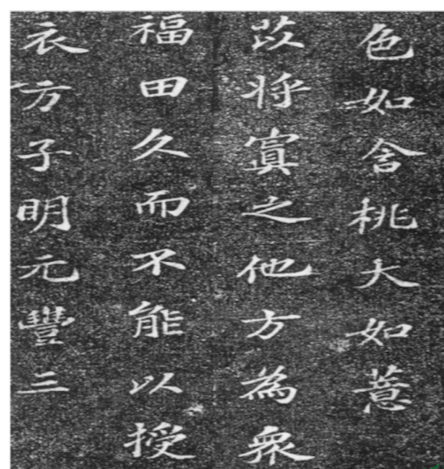 色如含桃大如薏
苡將寘之他方為衆
福田久而不能以授
衣方子明元豐三